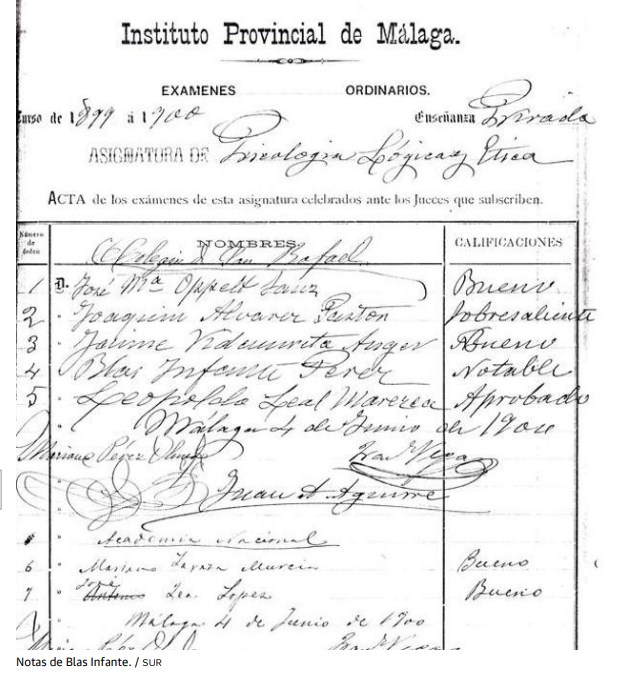 Instituto Provincial de Málaga.
EXAMENES ORDINARIOS.
Curso de 1899 á 1900 Enseñanza Privada
ASIGNATURA DE Psicología Lógica y Etica
ACTA de los exámenes de esta asignatura celebrados ante los Jueces que subscriben.
Número de orden NOMBRES CALIFICACIONES
Colegio de San Rafael
1 D. José Mª Oppelt Sanz Bueno
2 " Joaquin Alvarez Pastor Sobresaliente
3 " Jaime Anger Bueno
4 " Blas Infante Perez Notable
5 " Leopoldo Leal Aprobado
Málaga 4 de Junio de 1900
Mariano Pérez Vega
Juan A Aguirre
Academia Nacional
6 " Mariano Murcia Bueno
7 " José Antonio Lopez Bueno
Málaga 4 de Junio de 1900
Notas de Blas Infante. / SUR